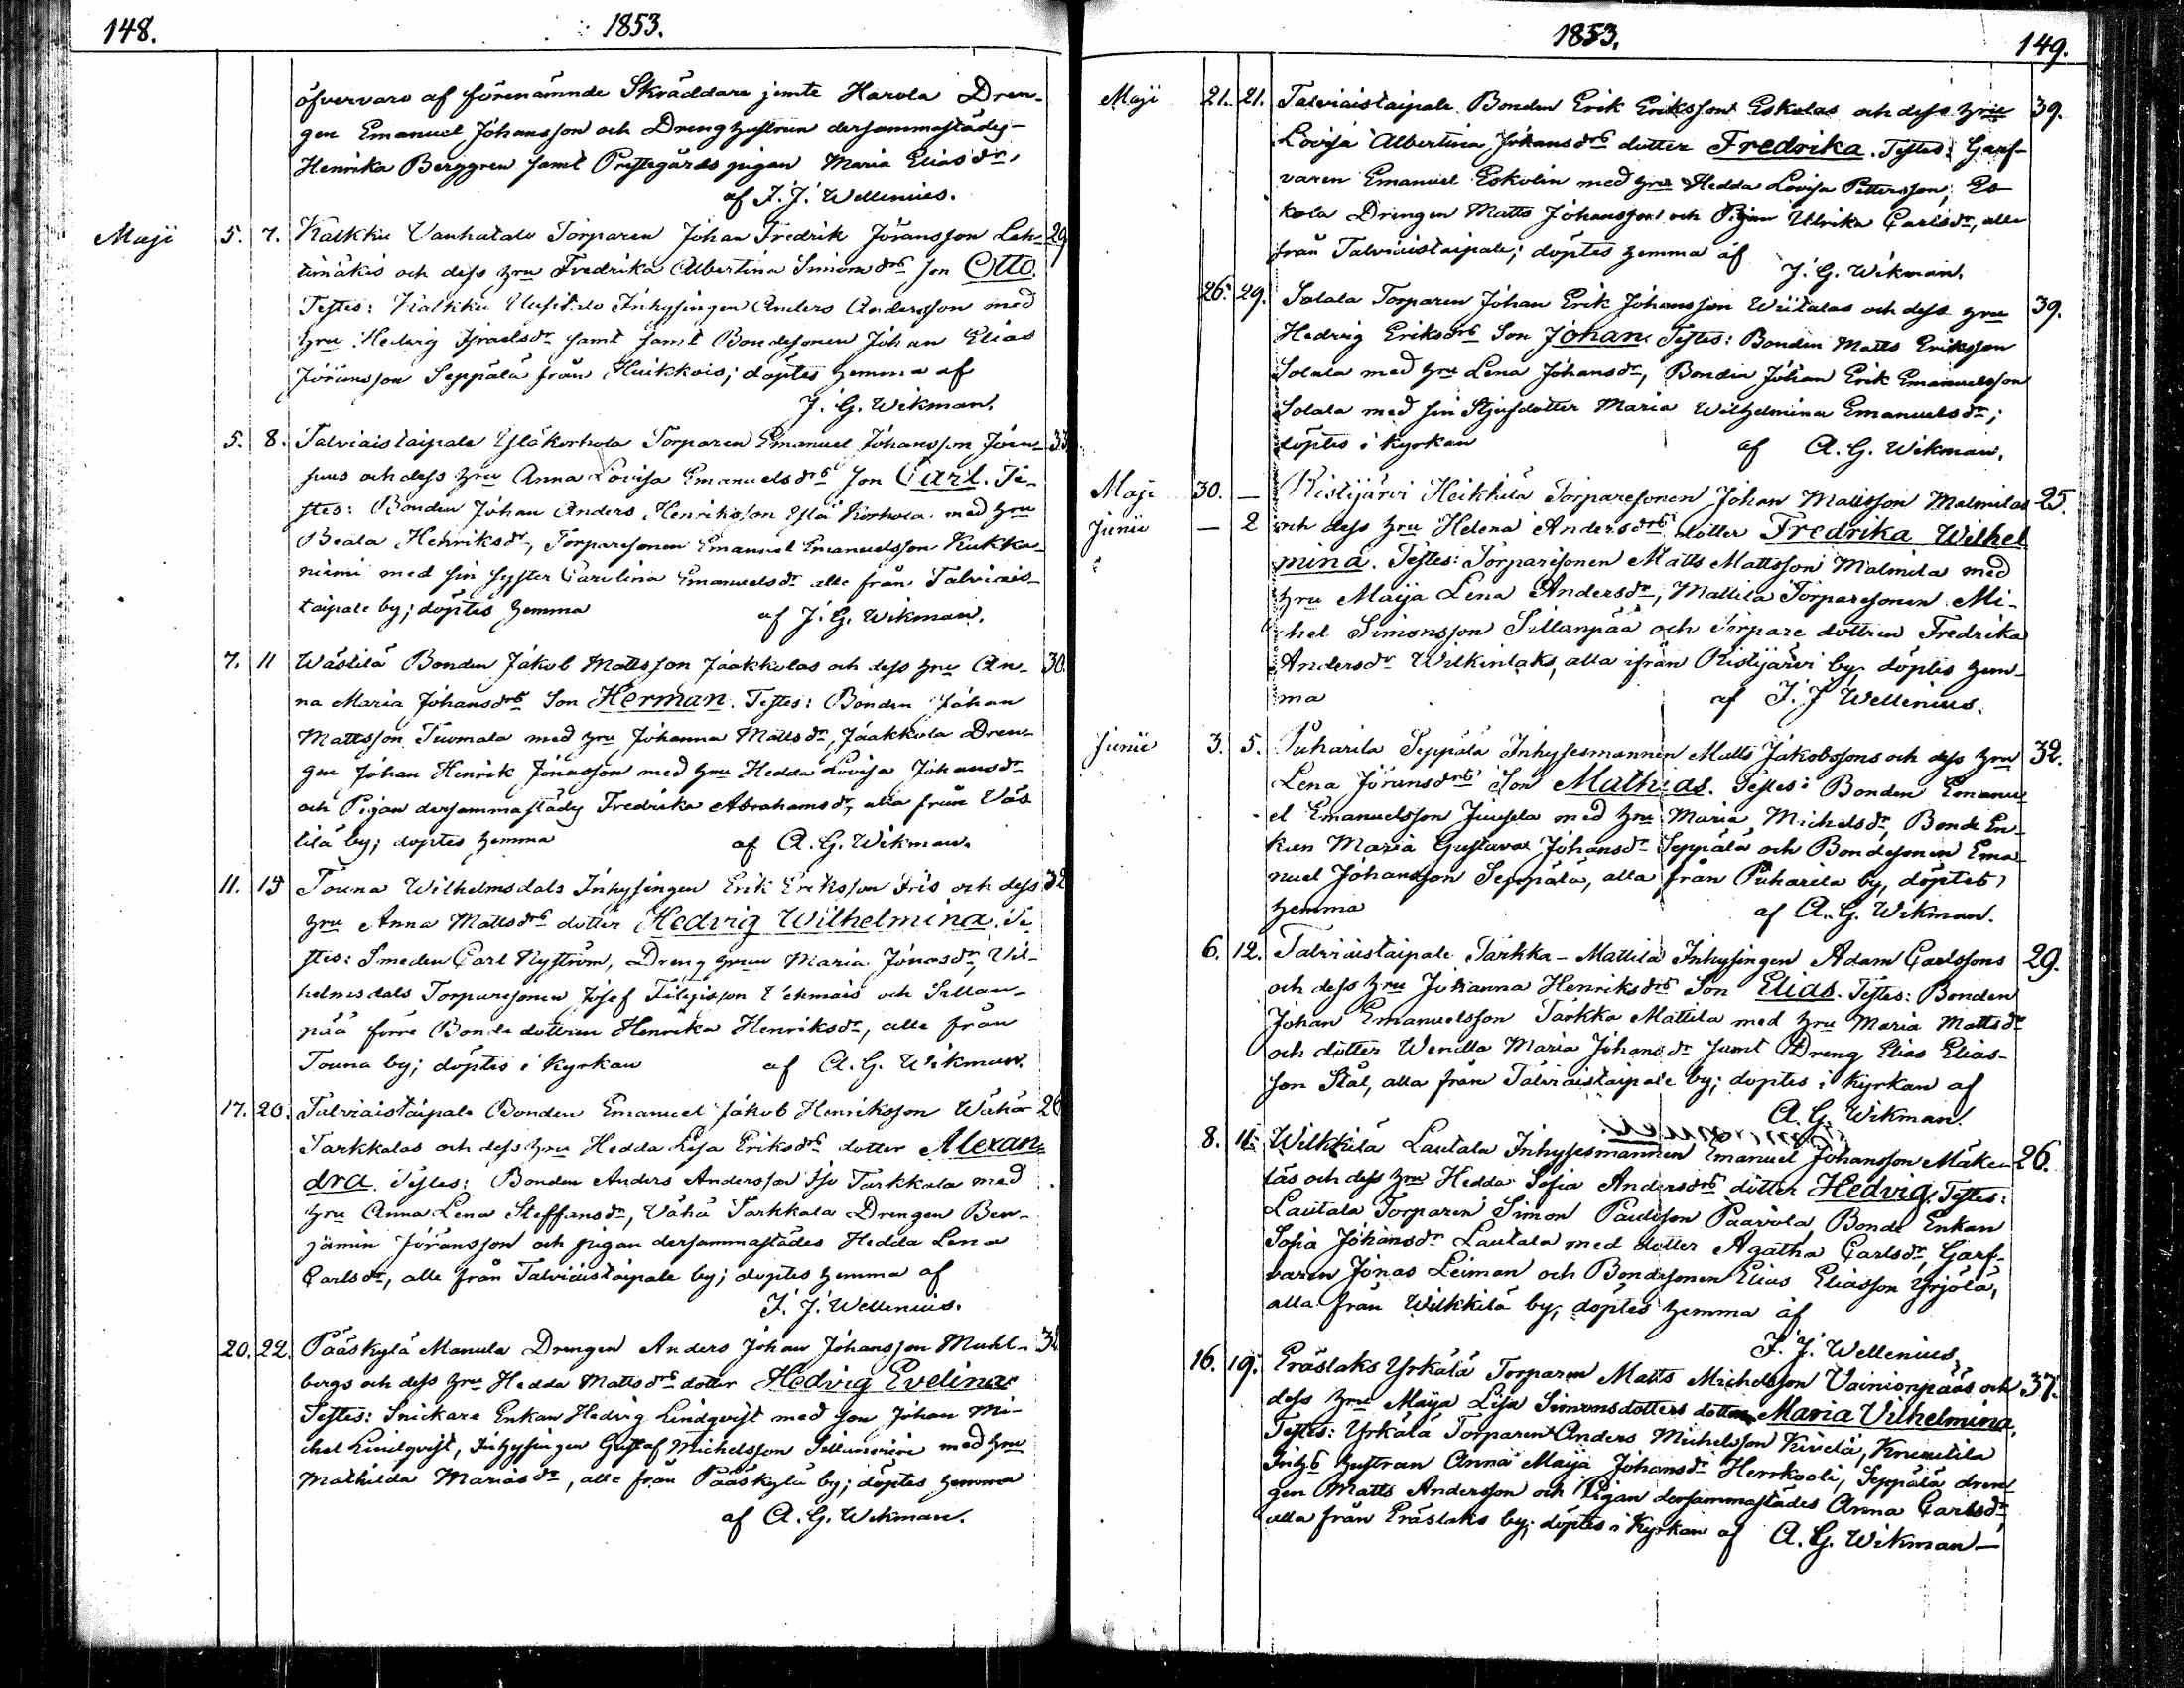 148.
1853.
öfvervaro af förenämnde Skräddare jemte Harola Dren-
gen Emanuel Johansson och Dreng hustrun dersammastädes
Henrika Berggren samt Prestegårds pigan Maria Eliasdr,
af F. J. Wellenius.
Maji 5. 7. Kalkku Vanhatalo Torparen Johan Fredrik Jöransson Leh- 29
timäkis och dess hru Fredrika Albertina Simonsdrs son Otto.
Testes: Kalkku Uusitalo Inhysingen Anders Andersson med
hru Hedvig Israelsdr samt samt Bondesonen Johan Elias
Jöransson Seppälä från Huikkois; döptes hemma af
J. G. Wikman.
5. 8. Talviaistaipale Yläkorhola Torparen Emanuel Johansson Joen- 33
suus och dess hru Anna Lovisa Emanuelsdrs son Carl. Te-
stes: Bonden Johan Anders Henriksson Ylä Korhola med hru
Beata Henriksdr, Torparesonen Emanuel Emanuelsson Kukka-
niemi med sin syster Carolina Emanuelsdr alle från Talviais-
taipale by; döptes hemma af J. G. Wikman.
7. 11 Wästilä Bonden Jakob Mattsson Jaakkolas och dess hru An- 30.
na Maria Johansdrs Son Herman. Testes: Bonden Johan
Mattsson Tuomala med hru Johanna Mattsdr, Jaakkola Dren-
gen Johan Henrik Jonasson med hru Hedda Lovisa Johansdr
och Pigan dersammastädes Fredrika Abrahamsdr, alla från Väs
tilä by; döptes hemma af A. G. Wikman.
11. 15 Touna Wilhelmsdals Inhysingen Erik Eriksson Iris och dess 32
hru Anna Mattsdrs dotter Hedvig Wilhelmina. Te
stes: Smeden Carl Nyström, Dreng hrun Maria Jonasdr, Wil-
helmsdals Torparesonen Josef Filipsson Vehmais och Sillan-
pää förre Bonde dottren Henrika Henriksdr, alle från
Touna by; döptes i Kyrkan af A. G. Wikman.
17. 20. Talviaistaipale Bonden Emanuel Jakob Henriksson Wähä 26
Tarkkalas och dess hru Hedda Lisa Eriksdrs dotter Alexan-
dra. Testes: Bonden Anders Andersson Iso Tarkkala med
hru Anna Lena Steffansdr, Vähä Tarkkala Drengen Ben-
jamin Jöransson och pigan dersammastädes Hedda Lena
Carlsdr, alle från Talviaistaipale by; döptes hemma af
F. J. Wellenius.
20. 22. Pääskylä Manula Drengen Anders Johan Johansson Muhl-
bergs och dess hru Hedda Mattsdrs dotter Hedvig Evelina
Testes: Snickare Enkan Hedvig Lindqvist med son Johan Mi-
chel Lindqvist, Inhysingen Gustaf Michelsson med hru
Mathilda Mariasdr, alle från Pääskylä by; döptes hemma
af A. G. Wikman.
1853.
149.
Maji 21. 21. Talviaistaipale Bonden Erik Eriksson Eskolas och dess hru 39.
Lovisa Albertina Johansdrs dotter Fredrika. Testes: Garf-
varen Emanuel Eskolin med hru Hedda Lovisa Pettersson; Es
kola Drengen Matts Johansson och Pigan Ulrika Carlsdr, alle
från Talviaistaipale; döptes hemma af
J. G. Wikman.
26. 29. Salala Torparen Johan Erik Johansson Wiitalas och dess hru 39.
Hedvig Eriksdrs Son Johan. Testes: Bonden Matts Eriksson
Solala med hru Lena Johansdr, Bonden Johan Erik Emanuelsson
Solala med sin Stjufdotter Maria Wilhelmina Emanuelsdr;
döptes i kyrkan af A. G. Wikman.
Maji 30. — Ristijärvi Heikkilä Torparesonen Johan Mattsson Malmilas 25.
Junii — 2 och dess hru Helena Andersdrs dotter Fredrika Wilhel
mina. Testes: Torparesonen Matts Mattsson Malmila med
hru Maija Lena Andersdr, Mattila Torparesonen Mi-
chel Simonsson Sillanpää och Torpare dottren Fredrika
Andersdr Wilkinlaks, alla ifrån Ristijärvi by, döptes hem-
ma af F. J Wellenius.
Junii 3. 5. Puharila Seppälä Inhysesmannen Matts Jakobssons och dess hru 32.
Lena Jöransdrs Son Mathias. Testes: Bonden Emanu-
el Emanuelsson Juusela med hru Maria Michelsdr, Bonde En-
kan Maria Gustava Johansdr Seppälä och Bondesonen Ema-
nuel Johansson Seppälä, alla från Puharila by, döptes
hemma af A. G. Wikman.
6. 12. Talviaistaipale Tarkka-Mattila Inhysingen Adam Carlssons 29.
och dess hru Johanna Henriksdrs Son Elias. Testes: Bonden
Johan Emanuelsson Tarkka Mattila med hru Maria Mattsdr
och dotter Wendla Maria Johansdr samt Dreng Elias Elias-
son Stål, alla från Talviaistaipale by; döptes i Kyrkan af
A. G. Wikman.
8. 11. Wilkkilä Lautala Inhysesmannen Emanuel Johansson Mäke- 26.
läs och dess hru Hedda Sofia Andersdrs dotter Hedvig. Testes:
Lautala Torparen Simon Paulsson Paavola, Bonde Enkan
Sofia Johansdr Lautala med dotter Agatha Carlsdr, Garf-
varen Jonas Leiman och Bondesonen Elias Eliasson Yrjölä,
alla från Wilkkilä by, döptes hemma af
F. J. Wellenius,
16. 19. Eräslaks Yrkälä Torparen Matts Michelsson Vainionpääs och 37.
dess hru Maija Lisa Simonsdotters dotter Maria Vilhelmina,
Testes: Yrkälä Torparen Anders Michelsson Kivelä, Knuutila
hustrun Anna Maija Johansdr Herrkooli, Seppälä dren-
gen Matts Andersson och Pigan dersammastädes Anna Carlsdr,
alla från Eräslaks by; döptes i Kyrkan af A. G. Wikman—